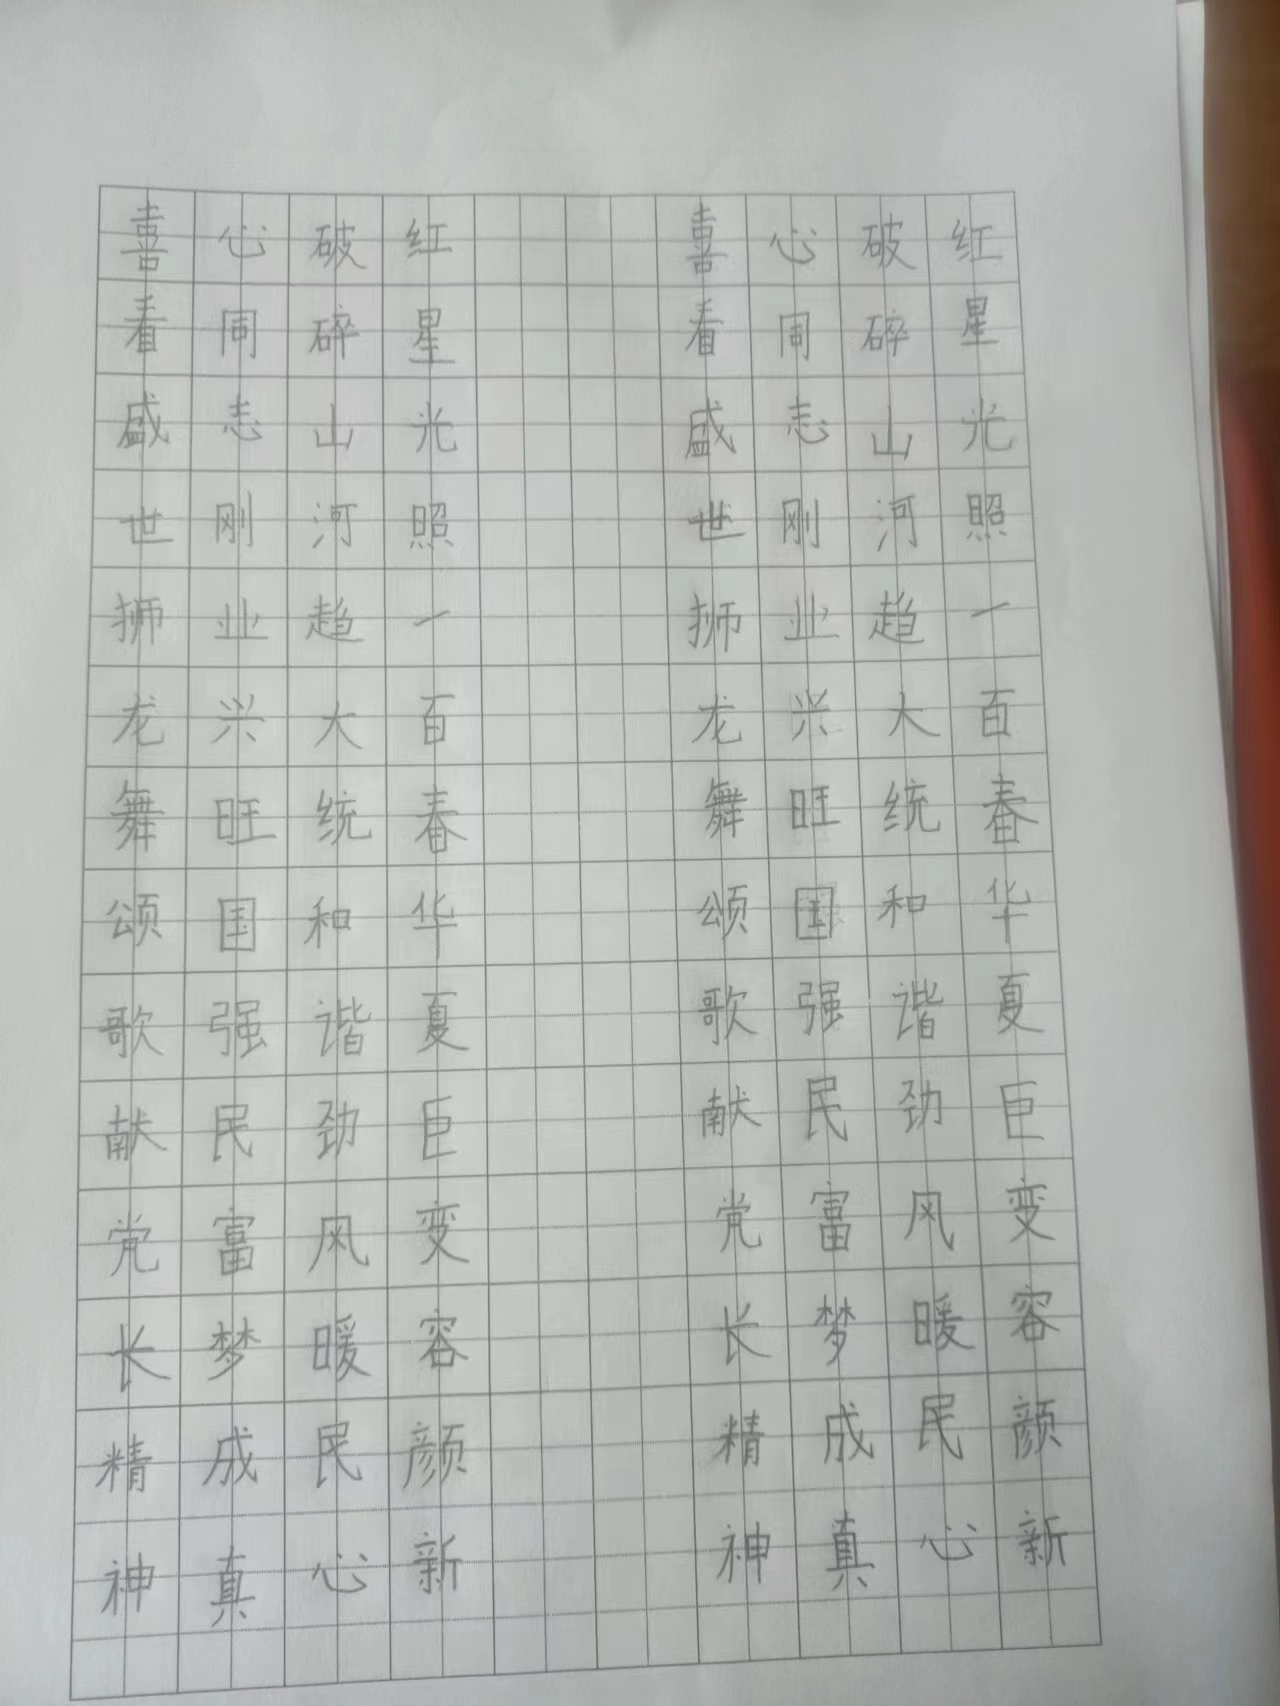 红星光照一百春华夏巨变容颜新
破碎山河趋大统和谐劲风暖民心
心同志刚业兴旺国强民富梦成真
喜看盛世狮龙舞颂歌献党长精神
红星光照一百春华夏巨变容颜新
破碎山河趋大统和谐劲风暖民心
心同志刚业兴旺国强民富梦成真
喜看盛世狮龙舞颂歌献党长精神